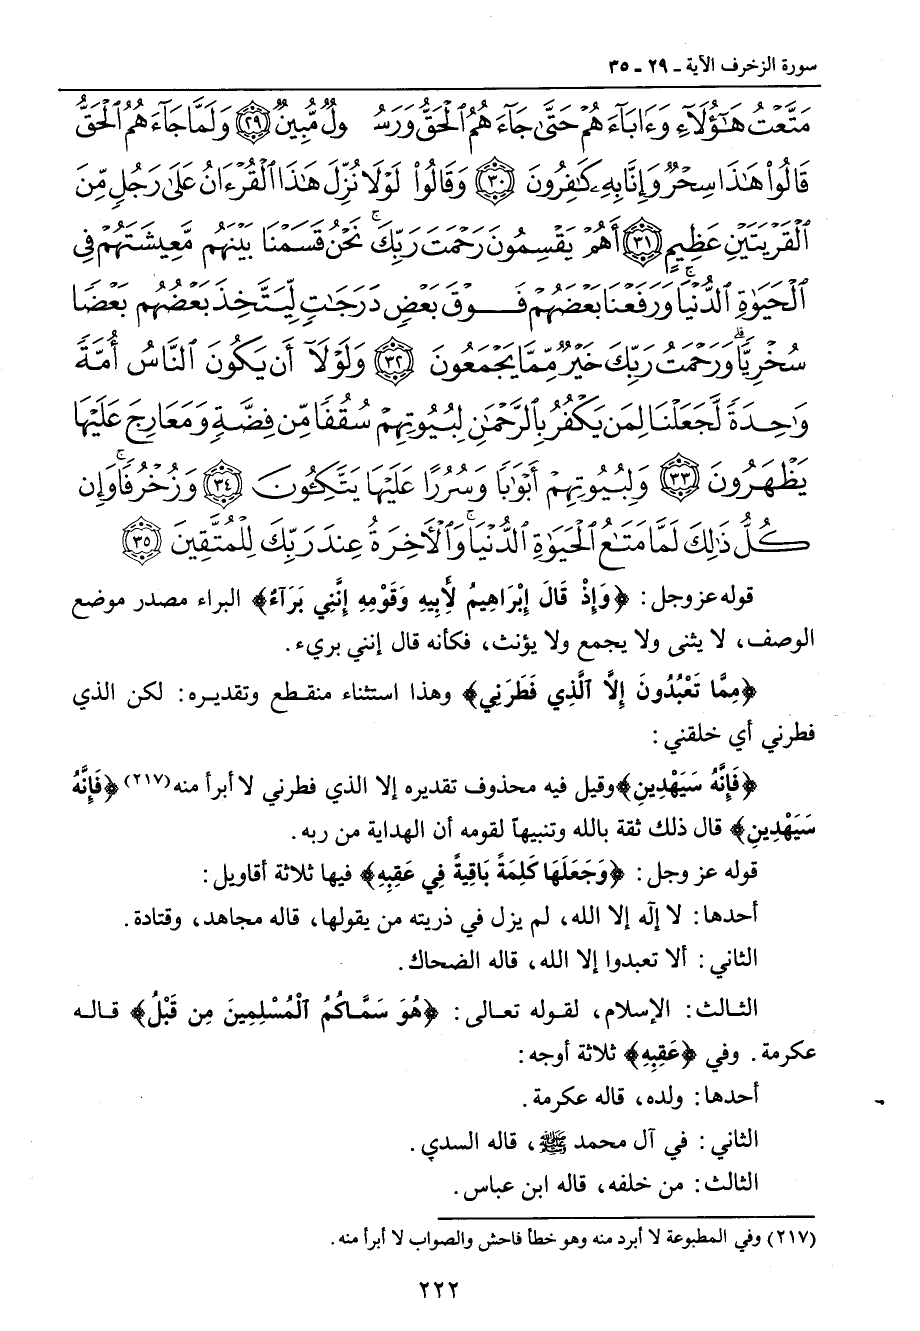 سورة الزخرف الآية ـ ٢٩ ـ ٣٥
مَتَّعْتُ هَٰٓؤُلَآءِ وَءَابَآءَهُمْ حَتَّىٰ جَآءَهُمُ ٱلْحَقُّ وَرَسُولٌ مُّبِينٌ ٢٩ وَلَمَّا جَآءَهُمُ ٱلْحَقُّ
قَالُوا۟ هَٰذَا سِحْرٌ وَإِنَّا بِهِۦ كَٰفِرُونَ ٣٠ وَقَالُوا۟ لَوْلَا نُزِّلَ هَٰذَا ٱلْقُرْءَانُ عَلَىٰ رَجُلٍ مِّنَ
ٱلْقَرْيَتَيْنِ عَظِيمٍ ٣١ أَهُمْ يَقْسِمُونَ رَحْمَتَ رَبِّكَ ۚ نَحْنُ قَسَمْنَا بَيْنَهُم مَّعِيشَتَهُمْ فِى
ٱلْحَيَوٰةِ ٱلدُّنْيَا ۚ وَرَفَعْنَا بَعْضَهُمْ فَوْقَ بَعْضٍ دَرَجَٰتٍ لِّيَتَّخِذَ بَعْضُهُم بَعْضًا
سُخْرِيًّا ۗ وَرَحْمَتُ رَبِّكَ خَيْرٌ مِّمَّا يَجْمَعُونَ ٣٢ وَلَوْلَآ أَن يَكُونَ ٱلنَّاسُ أُمَّةً
وَٰحِدَةً لَّجَعَلْنَا لِمَن يَكْفُرُ بِٱلرَّحْمَٰنِ لِبُيُوتِهِمْ سُقُفًا مِّن فِضَّةٍ وَمَعَارِجَ عَلَيْهَا
يَظْهَرُونَ ٣٣ وَلِبُيُوتِهِمْ أَبْوَٰبًا وَسُرُرًا عَلَيْهَا يَتَّكِـُٔونَ ٣٤ وَزُخْرُفًا ۚ وَإِن
كُلُّ ذَٰلِكَ لَمَّا مَتَٰعُ ٱلْحَيَوٰةِ ٱلدُّنْيَا ۚ وَٱلْءَاخِرَةُ عِندَ رَبِّكَ لِلْمُتَّقِينَ ٣٥
قوله عز وجل: ﴿وَإِذْ قَالَ إِبْرَاهِيمُ لأَبِيهِ وَقَوْمِهِ إِنَّنِي بَرَآءٌ﴾ البراء مصدر موضع
الوصف، لا يثنى ولا يجمع ولا يؤنث، فكأنه قال إنني بريء.
﴿مِمَّا تَعْبُدُونَ إِلَّا ٱلَّذِي فَطَرَنِي﴾ وهذا استثناء منقطع وتقديره: لكن الذي
فطرني أي خلقني:
﴿فَإِنَّهُ سَيَهْدِينِ﴾وقيل فيه محذوف تقديره إلا الذي فطرني لا أبرأ منه(٢١٧) ﴿فَإِنَّهُ
سَيَهْدِينِ﴾ قال ذلك ثقة بالله وتنبيهاً لقومه أن الهداية من ربه.
قوله عز وجل: ﴿وَجَعَلَهَا كَلِمَةً بَاقِيَةً فِي عَقِبِهِ﴾ فيها ثلاثة أقاويل:
أحدها: لا إله إلا الله، لم يزل في ذريته من يقولها، قاله مجاهد، وقتادة.
الثاني: ألا تعبدوا إلا الله، قاله الضحاك.
الثالث: الإسلام، لقوله تعالى: ﴿هُوَ سَمَّاكُمُ ٱلْمُسْلِمِينَ مِن قَبْلُ﴾ قاله
عكرمة. وفي ﴿عَقِبِهِ﴾ ثلاثة أوجه:
أحدها: ولده، قاله عكرمة.
الثاني: في آل محمد ﷺ، قاله السدي.
الثالث: من خلفه، قاله ابن عباس.
(٢١٧) وفي المطبوعة لا أبرد منه وهو خطأ فاحش والصواب لا أبرأ منه.
٢٢٢